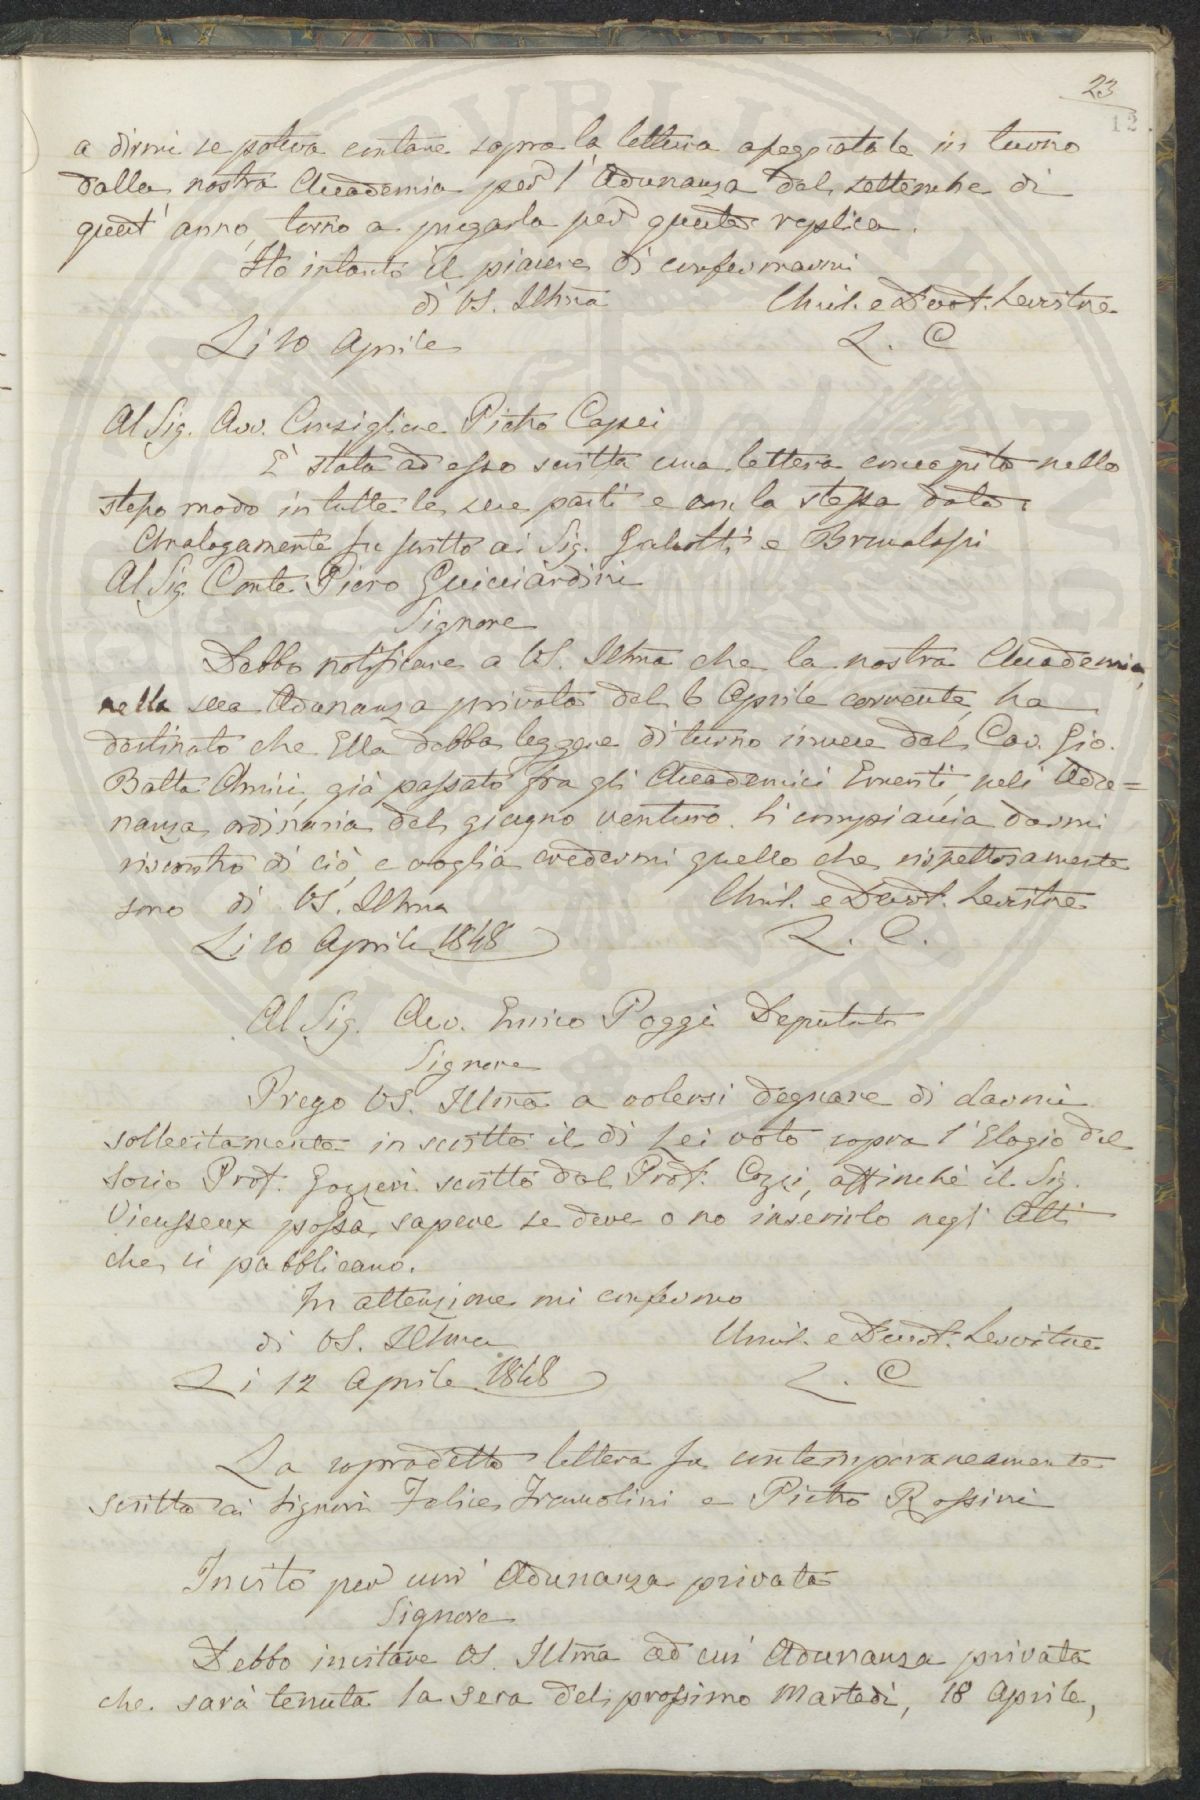 23
12.
a dirmi se poteva contare sopra la lettura assegnatale in turno
dalla nostra Accademia per l'Adunanza del settembre di
quest'anno, torno a pregarla per questa replica.
Ho intanto il piacere di confermarmi
di VS. Illma Umil. e Devot. Servitore
Li 10 Aprile L. C
Al Sig. Avv. Consigliere Pietro Capei
È stata ad esso scritta una lettera concepita nello
stesso modo in tutte le sue parti e con la stessa data.
Analogamente fu scritto ai Sig. Galeotti e
Al Sig. Conte Piero Guicciardini
Signore
Debbo notificare a VS. Illma che la nostra Accademia,
nella sua Adunanza privata del 6 Aprile corrente, ha
destinato che Ella debba leggere di turno invece del Cav. Gio.
Batta Amici, già passato fra gli Accademici Emeriti, nell'Adu=
nanza ordinaria del giugno venturo. Si compiaccia darmi
riscontro di ciò, e voglia credermi quello che rispettosamente
sono di VS. Illma Umil. e Devot. Servitore
Li 10 Aprile 1848 L. C.
Al Sig. Avv. Enrico Poggi Deputato
Signore
Prego VS. Illma a volersi degnare di darmi
sollecitamente in scritto il di Lei voto sopra l'Elogio del
Socio Prof. Gazzeri scritto dal Prof. Cozzi, affinchè il Sig.
Vieusseux possa sapere se deve o no inserirlo negli Atti
che si pubblicano.
In attenzione mi confermo
di VS. Illma Umil. e Devot. Servitore
Li 12 Aprile 1848 L. C
La sopradetta lettera fu contemporaneamente
scritta ai Signori Felice Francolini e Pietro Rossini
Invito per un'Adunanza privata
Signore
Debbo invitare VS. Illma ad un'Adunanza privata
che sarà tenuta la sera del prossimo Martedì, 18 Aprile,